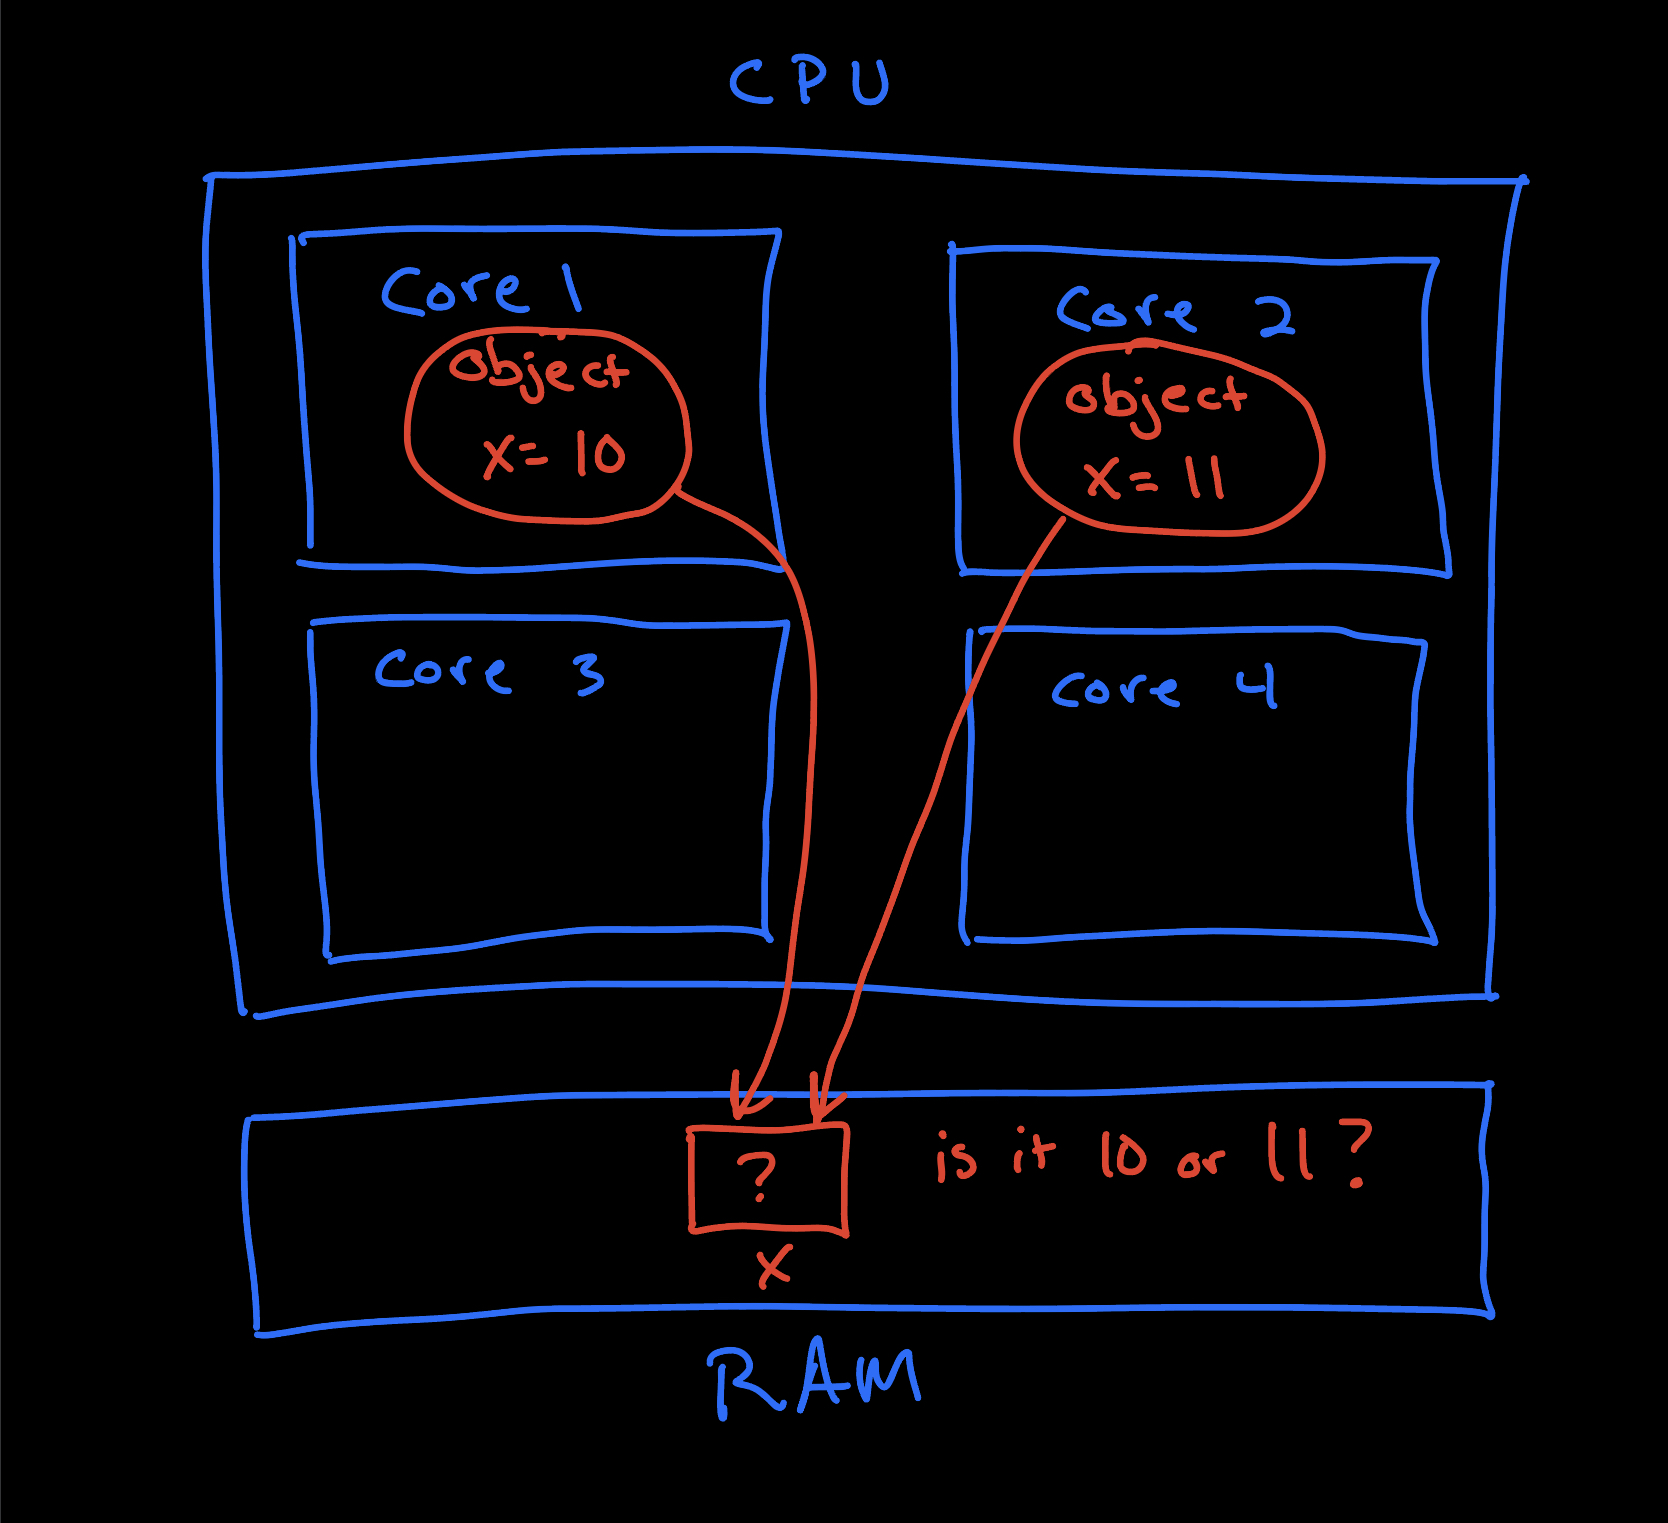 CPU
Core 1
object
x = 10
Core 2
object
x = 11
Core 3
Core 4
?
is it 10 or 11?
x
RAM